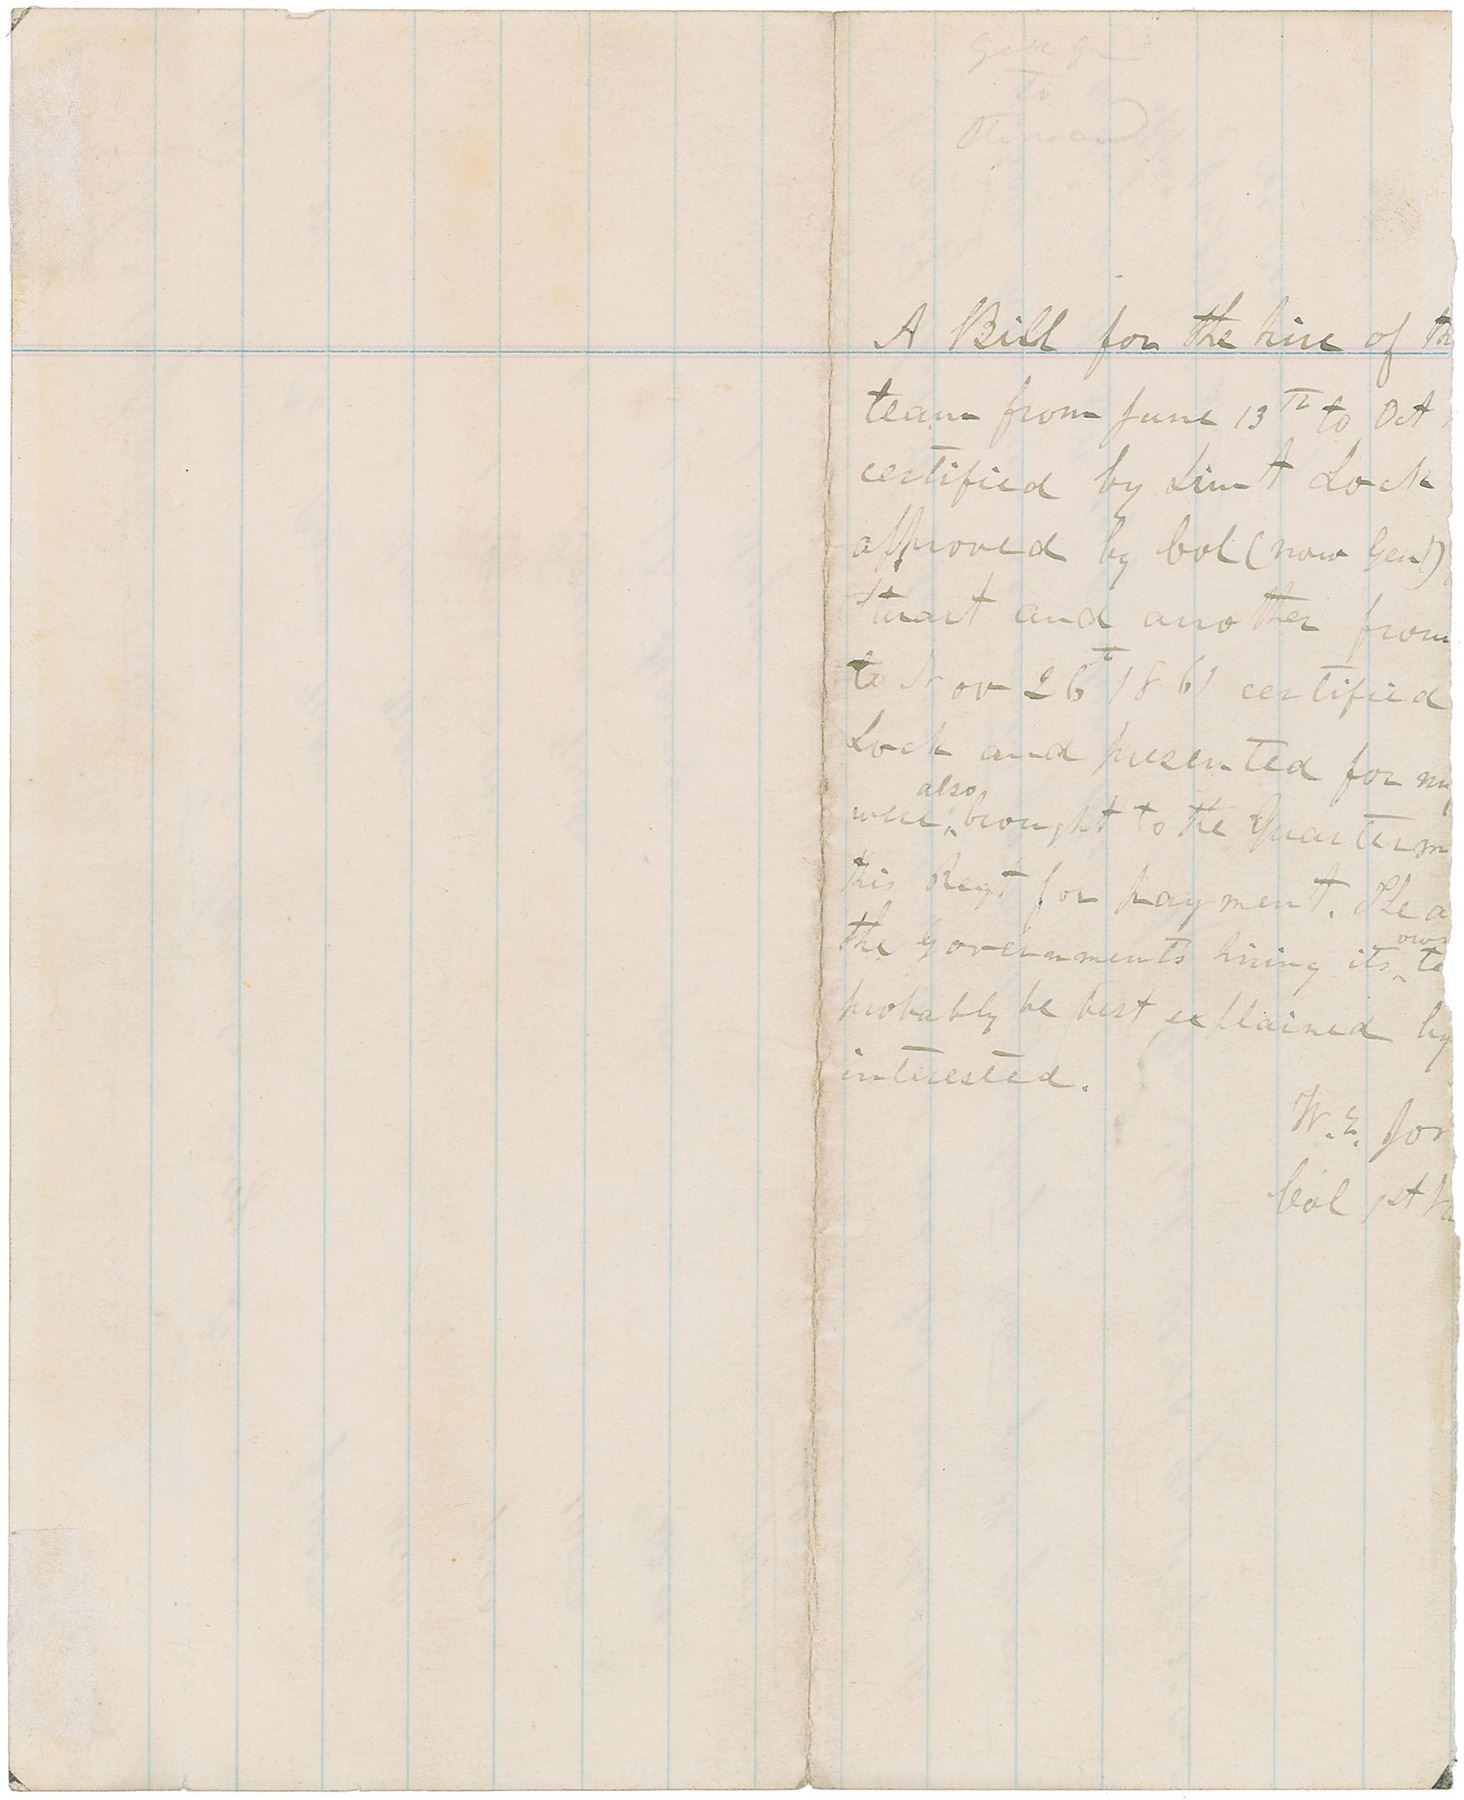 to
A Bill for the hire of th
team from June 13th to Oct
certified by Lieut Lock
approved by Col (now Genl)
Stuart and another from
to Nov 26th 1861 certified
Lock and presented for my
were also brought to the Quarterm
this Regt for payment. The a
the Governments hiring its own te
probably be best explained by
interested.
W. E. Jon
Col 1st Va